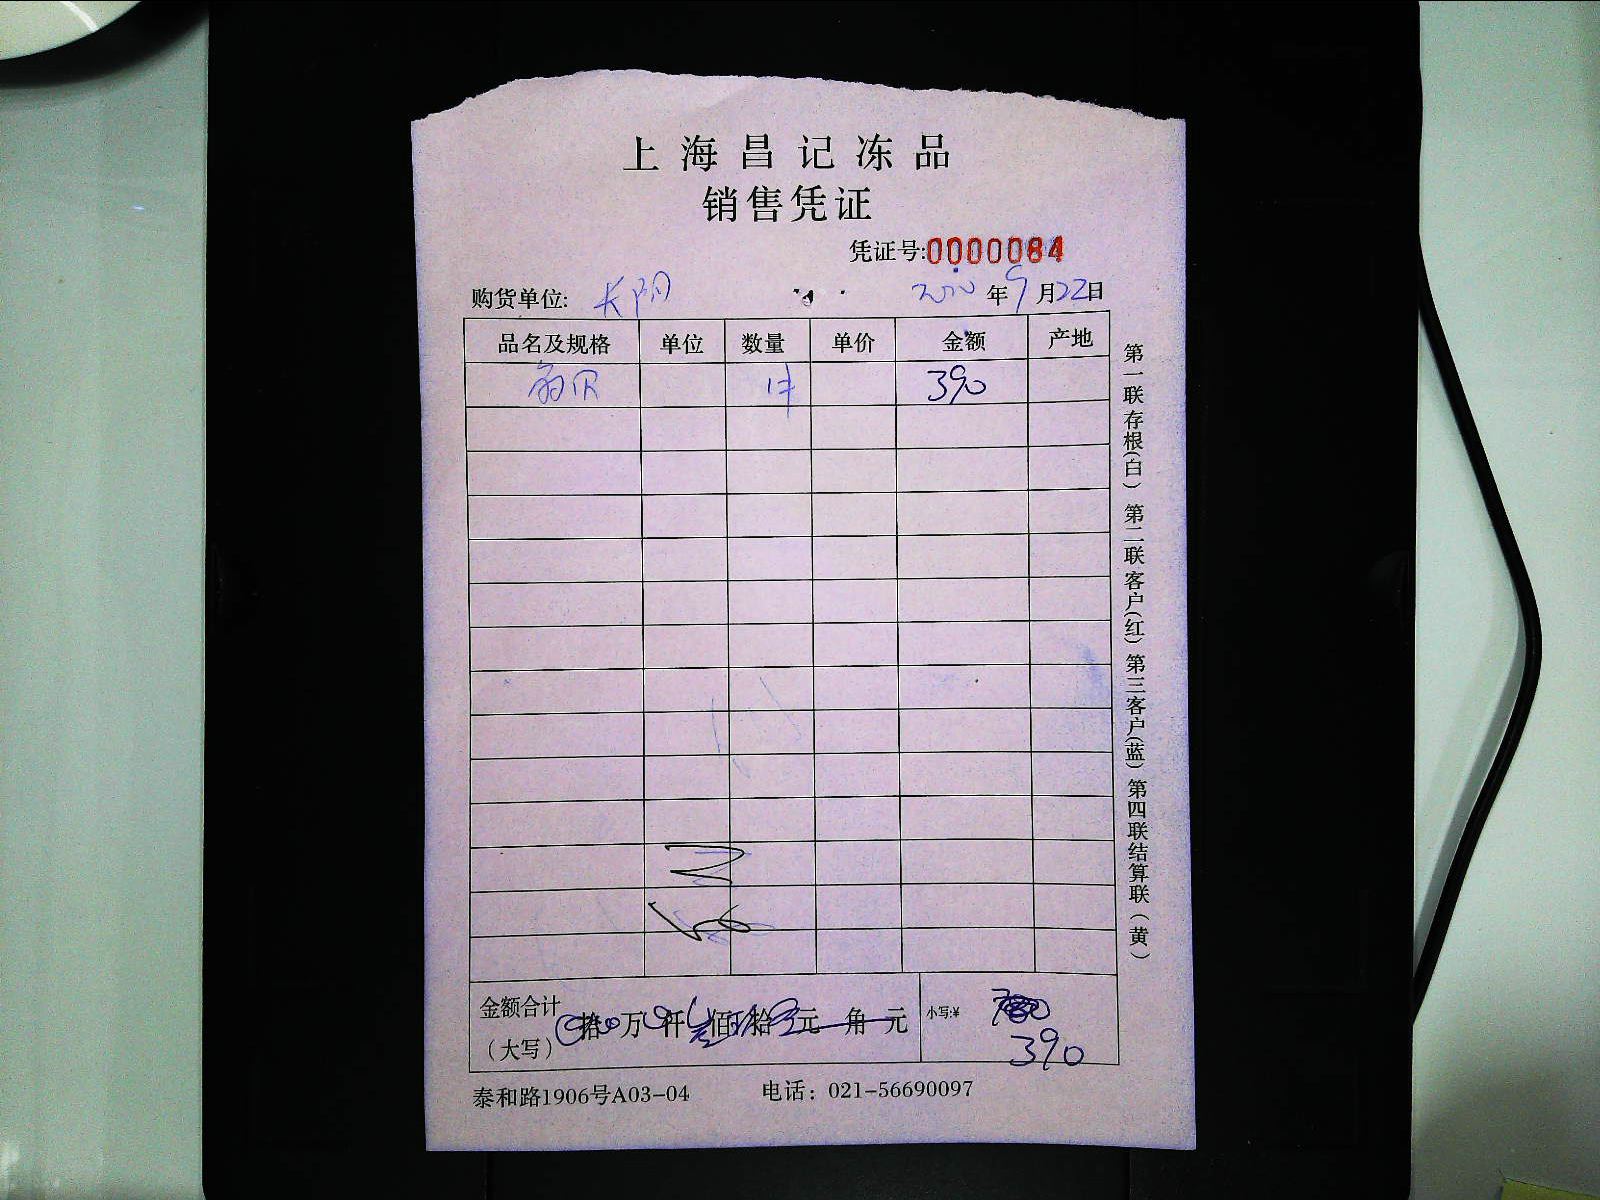 上海昌记冻品
销售凭证
凭证号:0000084
购货单位: 长阳 年9月22日
品名及规格 单位 数量 单价 金额 产地
1件 390
金额合计
(大写) 拾 万 仟 佰 拾 元 角 元 小写:¥
390
泰和路1906号A03-04 电话：021-56690097
第一联存根(白) 第二联客户(红) 第三客户(蓝) 第四联结算联(黄)